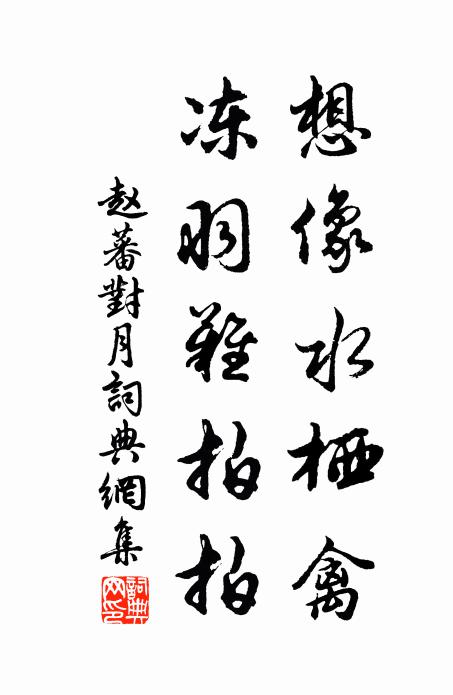 想像水栖禽
冻羽难拍拍
赵蕃對月詞典網集
詞典网印